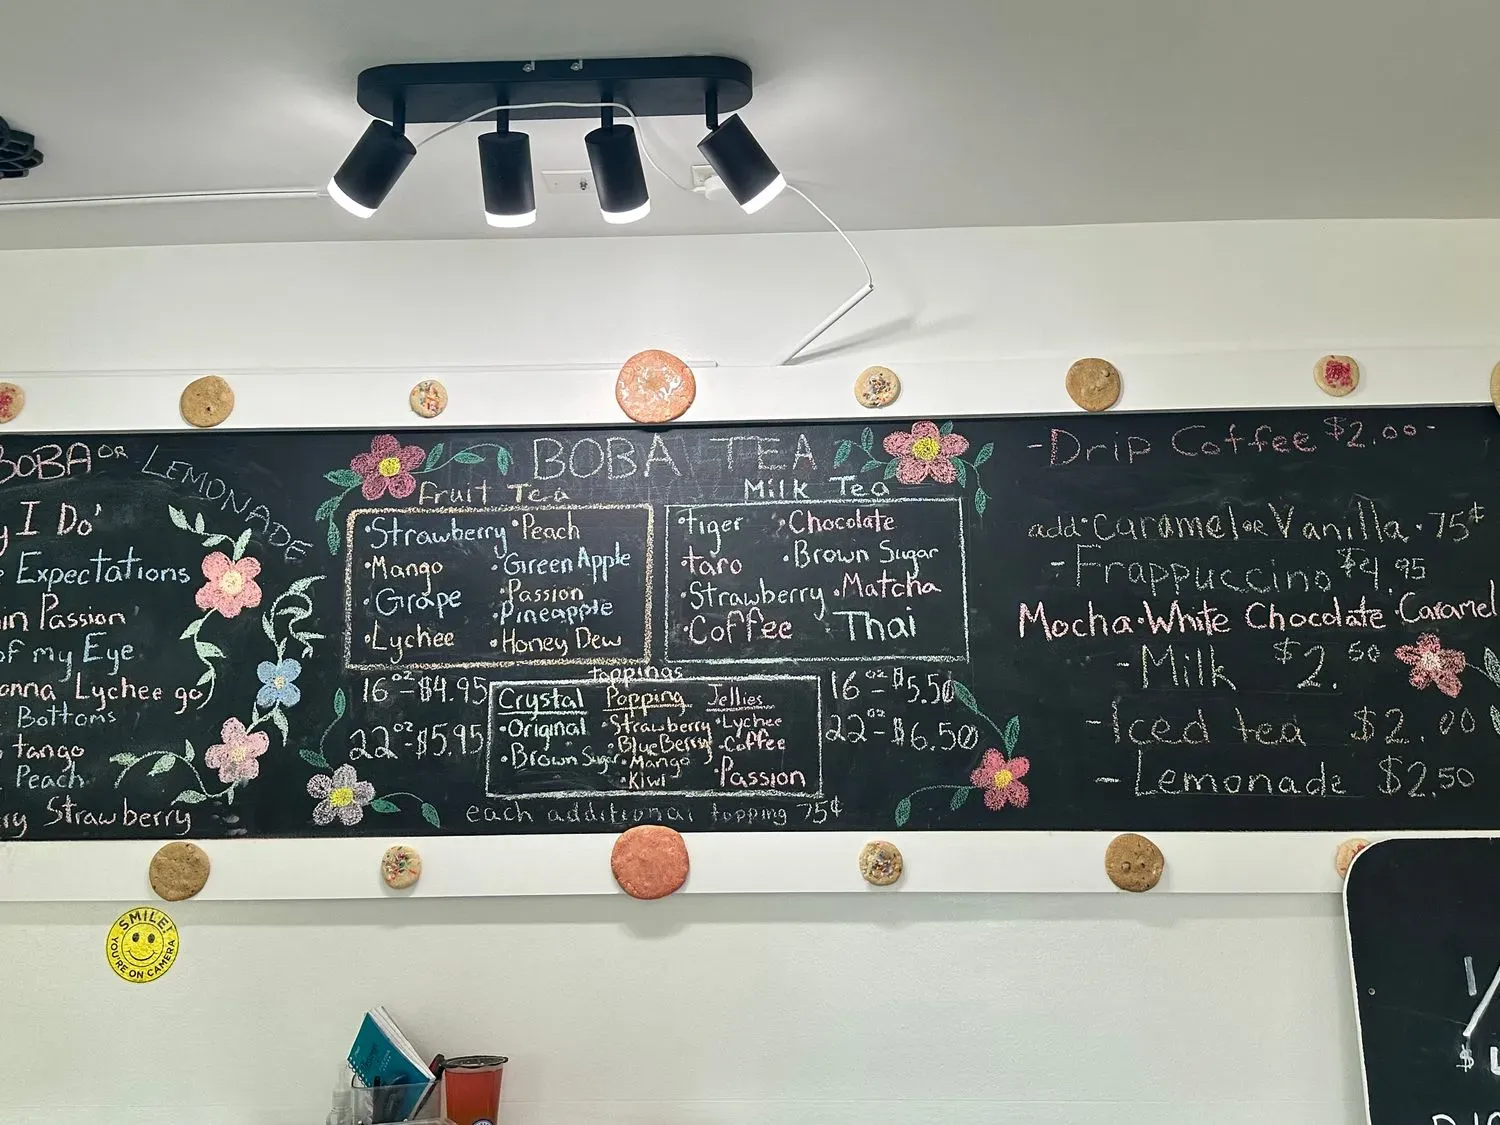 BOBA OR LEMONADE
I Do'
Expectations
in Passion
of my Eye
Lychee go)
Bottoms
tango
Peach
Strawberry
BOBA TEA
Fruit Tea
·Strawberry ·Peach
·Mango ·Green Apple
·Grape ·Passion
·Pineapple
·Lychee ·Honey Dew
16oz-$4.95
22oz-$5.95
Milk Tea
·tiger ·Chocolate
·taro ·Brown Sugar
·Strawberry ·Matcha
·Coffee ·Thai
16oz-$5.50
22oz-$6.50
toppings
Crystal Popping Jellies
·Original ·Strawberry ·Lychee
·Brown Sugar ·BlueBerry ·Coffee
·Mango
·Kiwi ·Passion
each additional topping 75¢
-Drip Coffee $2.00-
add·Caramel or Vanilla·75¢
-Frappuccino $4.95
Mocha·White Chocolate·Caramel
-Milk $2.50
-Iced tea $2.00
-Lemonade $2.50
SMILE!
YOU'RE ON CAMERA